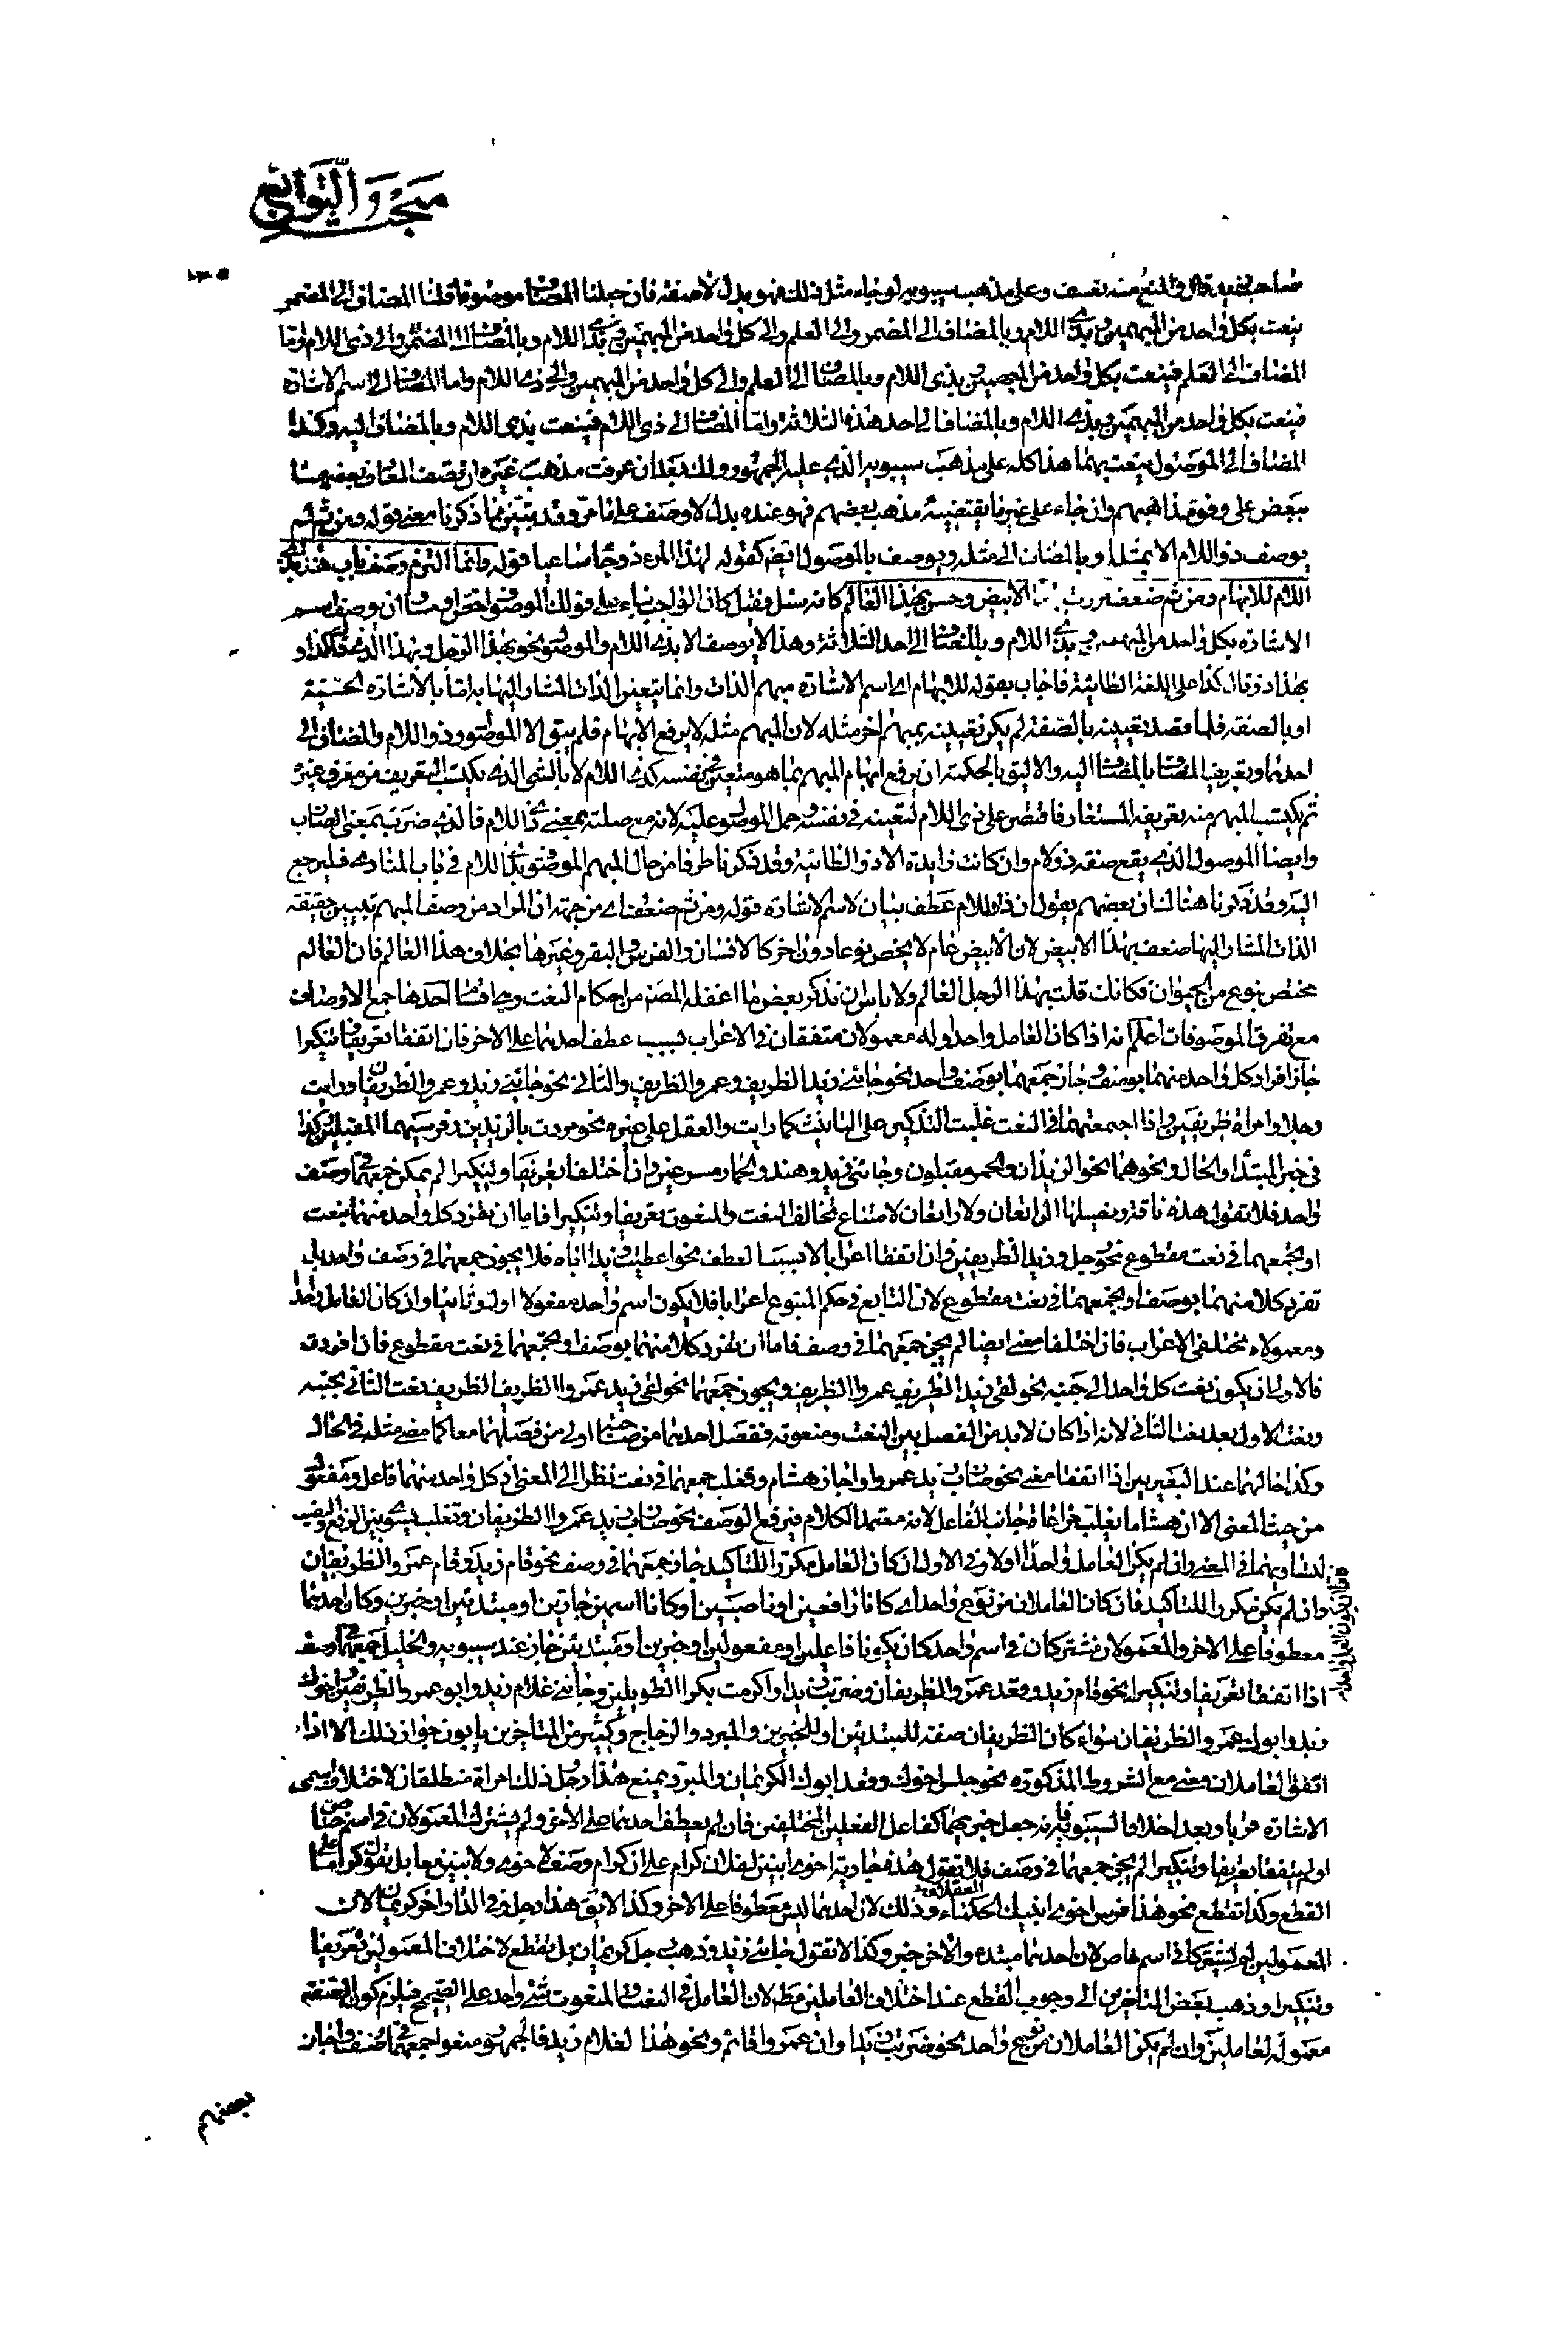 مبحث والتوابع
١٣٠
صاحب بعيد قال في المنع منه تعسف وعلى مذهب سيبويه لو جاء مثل ذلك فهو بدل لا صفة فان جعلنا المضاف موصوفا قلنا المضاف الى المضمر
ينعت بكل واحد من المبهمين وبذى اللام وبالمضاف الى المضمر والى العلم والى كل واحد من المبهمين والى ذى اللام وبالمضاف الى المضمر والى ذى اللام واما
المضاف الى العلم فينعت بكل واحد من المبهمين وبذى اللام وبالمضاف الى العلم والى كل واحد من المبهمين والى ذى اللام واما المضاف الى اسم الاشارة
فينعت بكل واحد من المبهمين وبذى اللام وبالمضاف الى احد هذه الثلاثة واما المضاف الى ذى اللام فينعت بذى اللام وبالمضاف اليه وكذا
المضاف الى الموصول ينعت بهما هذا كله على مذهب سيبويه الذى عليه الجمهور ولك بعد ان عرفت مذهب غيره ان تصف المعارف بعضها
ببعض على وفق مذاهبهم وان جاء على غير ما يقتضيه مذهب بعضهم فهو عنده بدل لا وصف على ما مر وقد تبين بما ذكرنا معنى قوله ومن ثم لم
يوصف ذو اللام الا بمثله وبالمضاف الى مثله ويوصف بالموصول ايضا كقوله لهذا المرء ذو جا ساعيا قوله وانما التزم وصف باب هذا بذى
اللام للابهام ومن ثم ضعف مررت بهذا الابيض وحسن بهذا العالم كانه سئل وقيل كان الواجب بناء على قولك الموصوف اخص او مساو ان يوصف اسم
الاشارة بكل واحد من المبهمين وبذى اللام وبالمضاف الى احد الثلاثة وهذا لا يوصف الا بذى اللام والموصول نحو بهذا الرجل وبهذا الذى قال كذا او
بهذا ذو قال كذا على اللغة الطائية فاجاب بقوله للابهام اى اسم الاشارة مبهم الذات وانما يتعين الذات المشار اليها به اما بالاشارة الحسية
او بالصفة فلما قصد تعيينه بالصفة لم يكن تعيينه بمبهم اخر مثله لان المبهم مثله لا يرفع الابهام فلم يبق الا الموصول وذو اللام والمضاف الى
احدهما وتعريف المضاف بالمضاف اليه والاليق بالحكمة ان يرفع ابهام المبهم بما هو متعين فى نفسه كذى اللام لا بالشى الذى يكتسب التعريف من معرف غيره
ثم يكتسب المبهم منه تعريفه المستعار فاقتصر على ذى اللام لتعينه فى نفسه وحمل الموصول عليه لانه مع صلته بمعنى ذى اللام فالذى ضرب بمعنى الضارب
وايضا الموصول الذى يقع صفة ذو لام وان كانت زايدة الا ذو الطائية وقد ذكرنا طرفا من حال المبهم الموصوف بذى اللام فى باب المنادى فليرجع
اليه وقد ذكرنا هنالك ان بعضهم يقول ان ذا اللام عطف بيان لاسم الاشارة قوله ومن ثم ضعف اى من جهة ان المراد من وصف المبهم تبيين حقيقة
الذات المشار اليها ضعف بهذا الابيض لان الابيض عام لا يخص نوعا دون اخر كالانسان والفرس والبقر وغيرها بخلاف هذا العالم فان العالم
مختص بنوع من الحيوان فكانك قلت بهذا الرجل العالم ولا باس ان نذكر بعض ما اغفله المصنف من احكام النعت وهى اقسام احدها جمع الاوصاف
مع تفرق الموصوفات اعلم انه اذا كان العامل واحدا وله معمولان متفقان فى الاعراب بسبب عطف احدهما على الاخر فان اتفقا تعريفا وتنكيرا
جاز افراد كل واحد منهما بوصف وجاز جمعهما بوصف واحد نحو جائنى زيد الظريف وعمرو الظريف والثانى نحو جائنى زيد وعمرو الظريفان ورايت
رجلا وامراة ظريفين واذا جمعتهما فى النعت غلبت التذكير على التانيث كما رايت والعقل على غيره نحو مررت بالزيدين وفرسيهما المقبلين وكذا
فى خبر المبتدأ والحال ونحوهما نحو الزيدان والحمر مقبلون وجائنى زيد وهند والحمار مسرعين وان اختلفا تعريفا وتنكيرا لم يمكن جمعهما فى وصف
واحد فلا تقول هذه ناقة وفصيلها الراتعان ولا راتعان لامتناع تخالف النعت والمنعوت تعريفا وتنكيرا فاما ان تفرد كل واحد منهما بنعت
او تجمعهما فى نعت مقطوع نحو رجل وزيد الظريفين وان اتفقا اعرابا لا بسبب العطف نحو اعطيت زيدا اباه فلا يجوز جمعهما فى وصف واحد بل
تفرد كلا منهما بوصف او تجمعهما فى نعت مقطوع لان التابع فى حكم المتبوع اعرابا فلا يكون اسم واحد مفعولا اول وثانيا وان كان العامل واحدا
ومعمولاه مختلفى الاعراب فان اختلفا معنى ايضا لم يجز جمعهما فى وصف فاما ان تفرد كلا منهما بوصف او تجمعهما فى نعت مقطوع فان افردت
فالاولى ان يكون نعت كل واحد الى جنبه نحو لقى زيد الظريف عمروا الظريف ويجوز جمعهما نحو لقى زيد عمروا الظريف الظريف نعت الثانى بجنبه
ونعت الاول بعد نعت الثانى لانه اذا كان لا بد من الفصل بين النعت ومنعوته ففصل احدهما من صاحبه اولى من فصلهما معا كما مضى مثله فى الحال
وكذا حالهما عند البصريين اذا اتفقا معنى نحو ضارب زيد عمروا واجاز هشام وثعلب جمعهما فى نعت نظرا الى المعنى اذ كل واحد منهما فاعل ومفعول
من حيث المعنى الا ان هشاما يغلب مراعاة جانب الفاعل لانه معتمد الكلام فيرفع الوصف نحو ضارب زيد عمروا الظريفان وثعلب يسوى بين الرفع والنصب
لتساويهما فى المعنى وان لم يكن العامل واحدا اولا وفى الاول ان كان العامل مكررا للتاكيد جاز جمعهما فى وصف نحو قام زيد وقام عمرو الظريفان
وان لم يكن مكررا للتاكيد فان كان العاملان من نوع واحد اى كانا رافعين او ناصبين او كانا اسمين جارين او مبتدئين او خبرين وكان احدهما
معطوفا على الاخر والمعمولان مشتركان فى اسم واحد كان يكونا فاعلين او مفعولين او خبرين او مبتدئين جاز عند سيبويه والخليل جمعهما فى وصف
اذا اتفقا تعريفا وتنكيرا نحو قام زيد وقعد عمرو الظريفان وضربت زيدا واكرمت بكرا الطويلين وجائنى غلام زيد وابو عمرو الظريفين واخوك
زيد وابوك عمرو الظريفان سواء كان الظريفان صفة للمبتدئين او للخبرين والمبرد والزجاج وكثير من المتاخرين يابون جواز ذلك الا اذا
اتفق العاملان معنى مع الشروط المذكورة نحو جلس اخوك وقعد ابوك الكريمان والمبرد يمنع هذا رجل وذلك امراة منطلقان لاختلاف اسمى
الاشارة قربا وبعدا خلافا لسيبويه فانه جعل خبريهما كفاعل الفعلين المختلفين فان لم يعطف احدهما على الاخر ولم يشترك المعمولان فى اسم خاص
او لم يتفقا تعريفا وتنكيرا لم يجز جمعهما فى وصف فلا تقول هذه جارية اخوى ابنين لفلان كرام على ان كرام وصف لاخوى ولابنين معا بل تقول كراما على
القطع وكذا تقطع نحو هذا فرس اخوى ابنيك الحكماء العقلاء وذلك لان احدهما ليس معطوفا على الاخر وكذا الا بق هذا رجل وفى الدار اخر كريمان لان
المعمولين لم يشتركا فى اسم خاص لان احدهما مبتدء والاخر خبر وكذا لا تقول جائنى زيد وذهب رجل كريمان بل يقطع لاختلاف المعمولين تعريفا
وتنكيرا وذهب بعض المتاخرين الى وجوب القطع عند اختلاف العاملين مط لان العامل فى النعت والمنعوت شئ واحد على الصحيح فيلزم كون الصفة
معمولة لعاملين وان لم يكن العاملان من نوع واحد نحو ضربت زيدا وان عمروا قائم ونحو هذا لغلام زيد فالجمهور منعوا جمعهما فى وصف واجاز
بعضهم